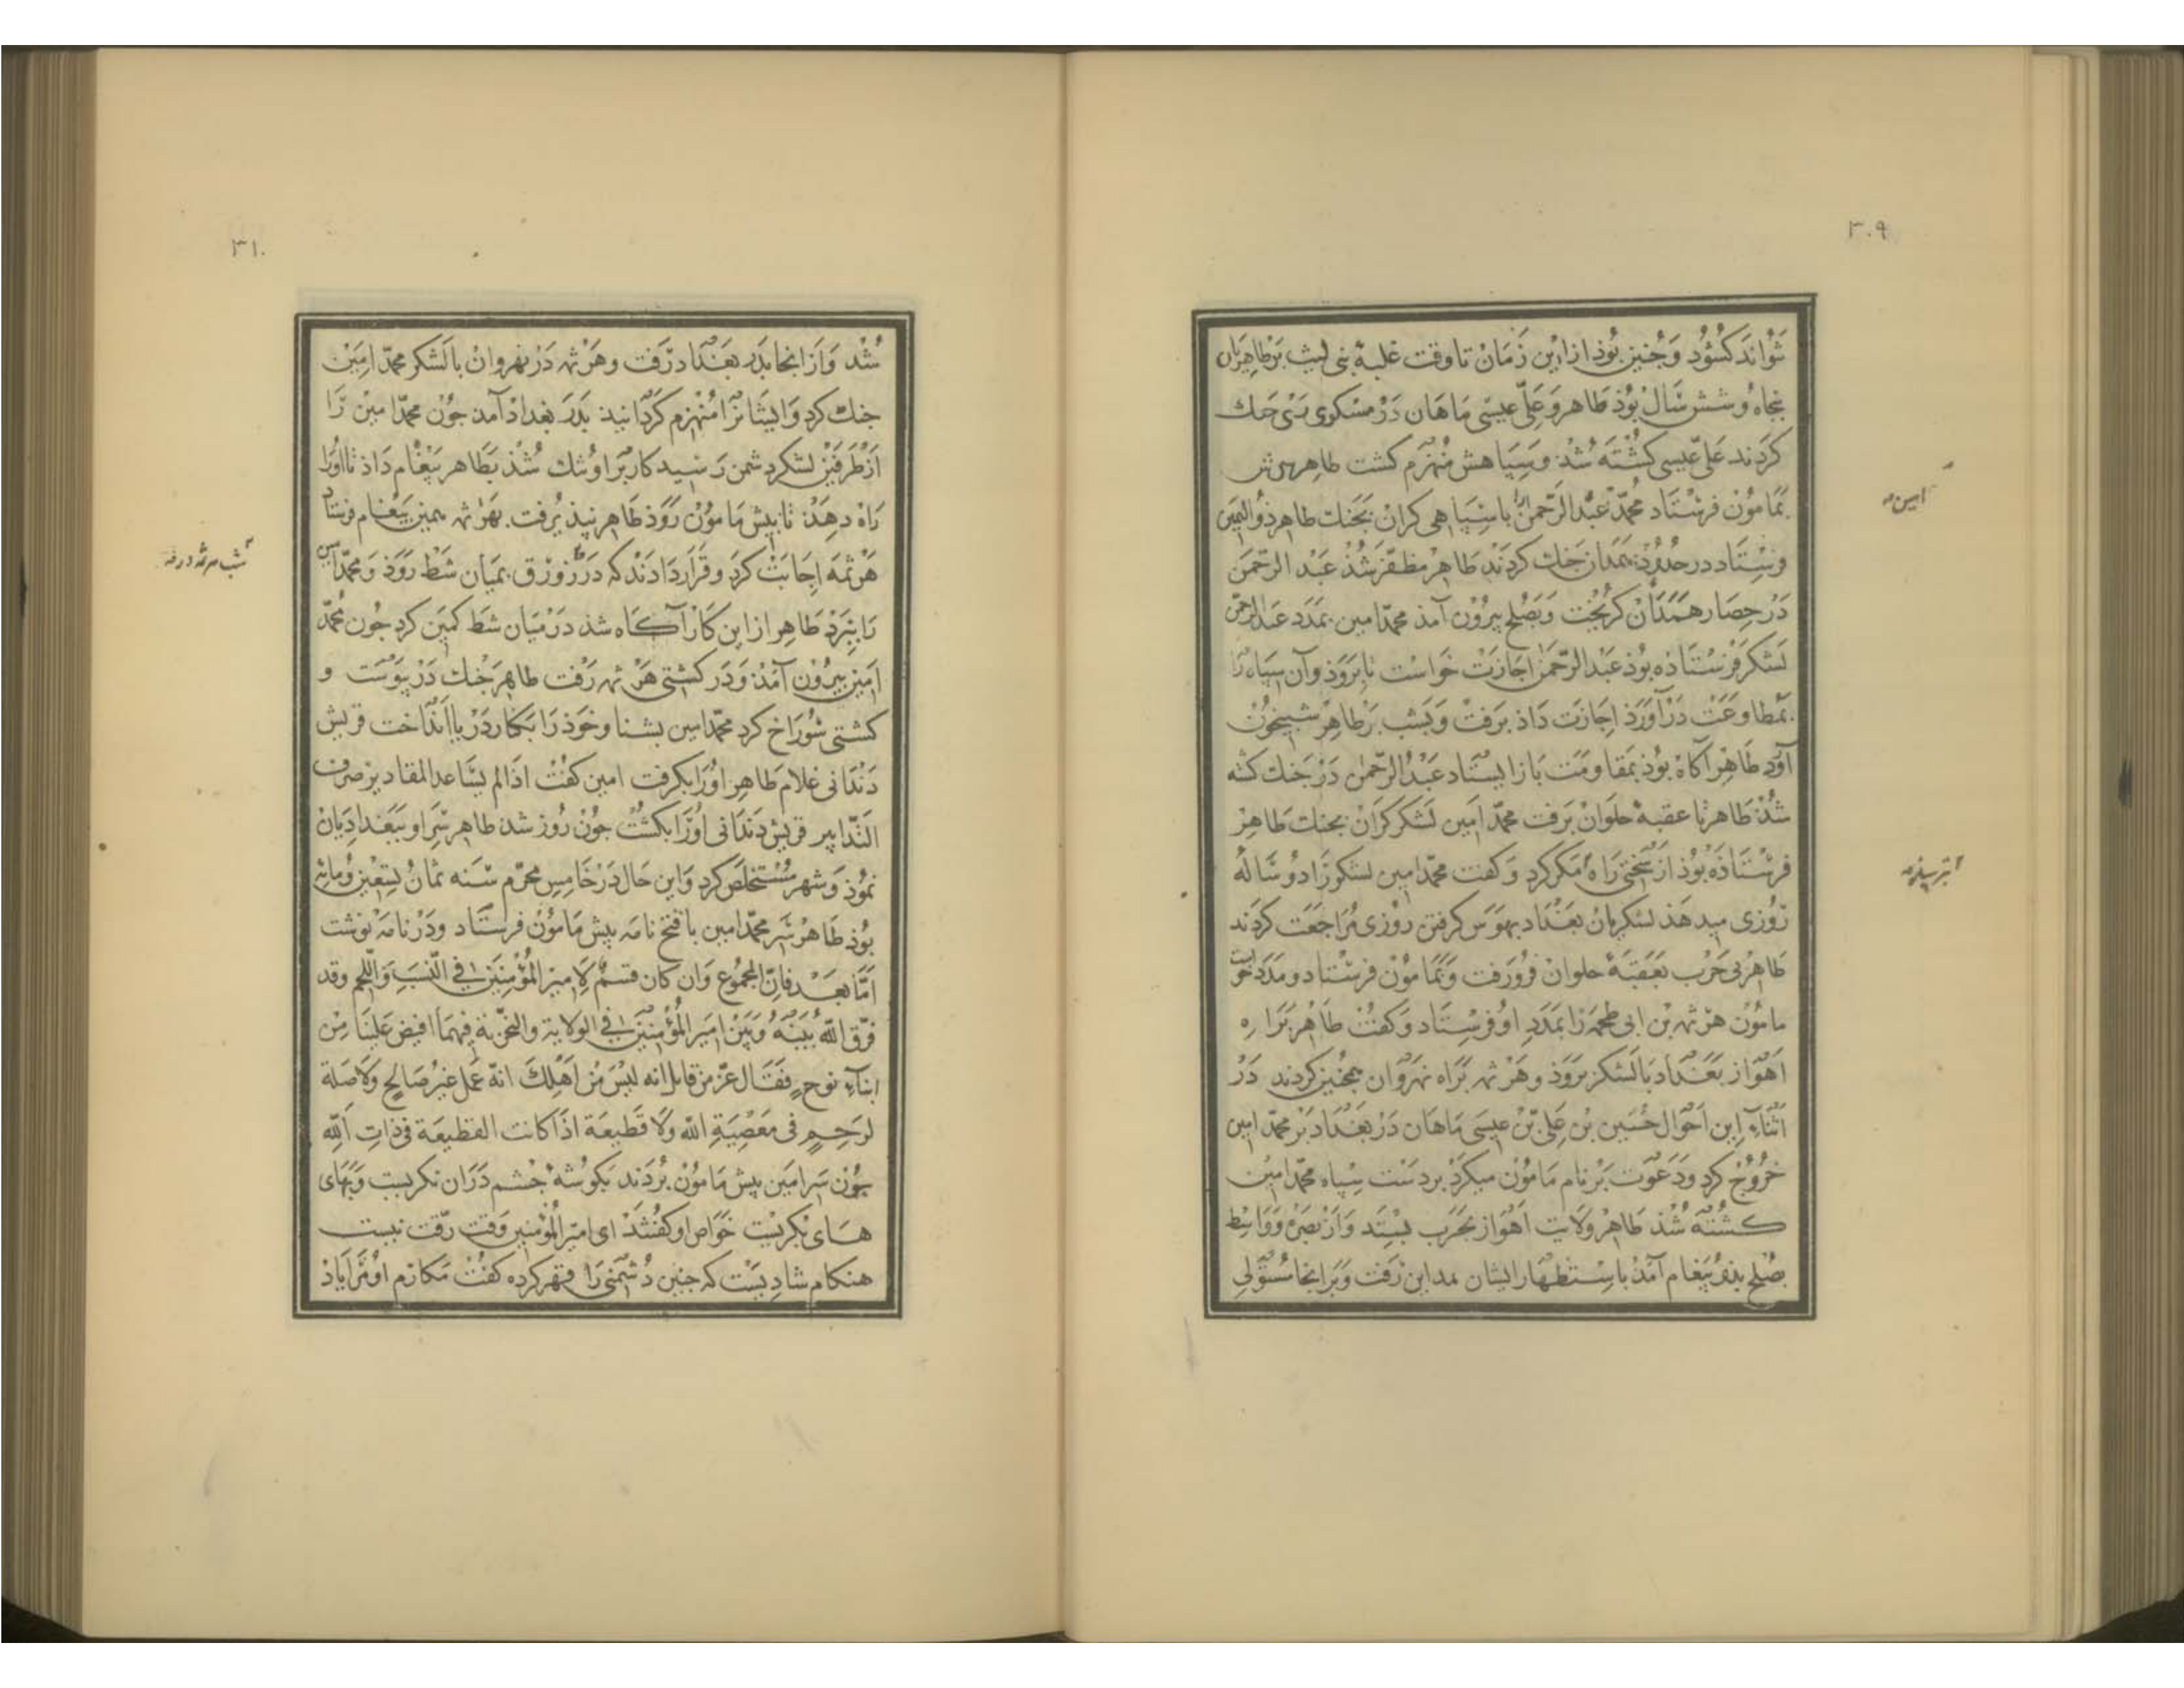 ۳۰۹
تواند کشود و جنین بوذ از این زمان تا وقت غلبهٔ بنی لیث بر طاهریان
بنجاه و شش سال بوذ طاهر و علی عیسی ماهان در مسکوی ری جنك
کردند علی عیسی کشته شذ و سپاهش منهزم کشت طاهر سرش
بمامون فرستاد محمد عبد الرحمن را با سپاهی کران بجنك طاهر ذو الیمین
فرستاد در حدود همدان جنك کردند طاهر مظفر شذ عبد الرحمن
در حصار همدان کریخت و بصلح بیرون آمذ محمد امین بمدد عبد الرحمن
لشکر فرستاذه بوذ عبد الرحمن اجازت خواست تا بروذ و آن سپاه را
بمطاوعت در آورذ اجازت داذ برفت و بشب بر طاهر شبیخون
آورد طاهر آکاه بوذ بمقاومت باز ایستاد عبد الرحمن در جنك کشته
شذ طاهر تا عقبهٔ حلوان برفت محمد امین لشکر کران بجنك طاهر
فرستاذه بوذ از سختی راه مکر کرد و کفت محمد امین لشکر را دو ساله
روزی میدهذ لشکریان بغداد بهوس کرفتن روزی مراجعت کردند
طاهر بی حرب بعقبهٔ حلوان فرو رفت و بمامون فرستاد و مدد خواست
مامون هرثمه بن ابی طحمه را بمدد او فرستاد و کفت طاهر براه
اهواز ببغداد با لشکر بروذ و هرثمه براه نهروان همجنین کردند در
اثناء این احوال حسین بن علی بن عیسی ماهان در بغداد بر محمد امین
خروج کرد و دعوت بر نام مامون میکرد بر دست سپاه محمد امین
کشته شذ طاهر ولایت اهواز بحرب بستد و از بصره و واسط
بصلح بذو پیغام آمذ باستظهار ایشان بمداین رفت و بر انجا مستولی
امین
۳۱۰
شذ و از انجا بدر بغداد رفت و هرثمه در نهروان با لشکر محمد امین
جنك کرد و ایشانرا منهزم کردانید بدر بغداد آمد جون محمد امین را
از طرفین لشکر دشمن رسید کار بر او تنك شذ بطاهر پیغام داذ تا اورا
راه دهد تا بیش مامون روذ طاهر نپذیرفت بهرثمه همین پیغام فرستاد
هرثمه اجابت کرد و قرار دادند که در زورق بمیان شط روذ و محمد امین
را ببرد طاهر از این کار آکاه شذ در میان شط کمین کرد جون محمد
امین بیرون آمذ و در کشتی هرثمه رفت طاهر جنك در پیوست و
کشتی سوراخ کرد محمد امین بشنا و خوذ را بکنار دریا انداخت قریش
دندانی غلام طاهر اورا بکرفت امین کفت اذا لم یساعد المقادیر صرف
التدابیر قریش دندانی اورا بکشت جون روز شد طاهر سر او ببغدادیان
نموذ و شهر مستخلص کرد و این حال در خامس محرم سنه ثمان تسعین و مائه
بوذ طاهر سر محمد امین با فتح نامه پیش مامون فرستاد و در نامه نوشت
اما بعد فان المخلوع وان کان قسیم لامیر المؤمنین فی النسب واللحم وقد
فرق الله بینه وبین امیر المؤمنین فی الولایة والخزنة فیما افیض علینا من
ابناء نوح فقال عز من قایل انه لیس من اهلك انه عمل غیر صالح ولا صلة
لرحم فی معصیة الله ولا قطیعة اذا کانت القطیعة فی ذات الله
جون سر امین پیش مامون بردند بکوشهٔ جشم در ان نکریست و بهای
های بکریست خواص او کفتند ای امیر المؤمنین وقت رقت نیست
هنکام شادیست که جنین دشمنی را قهر کرده کفت مکارم او مرا یاد